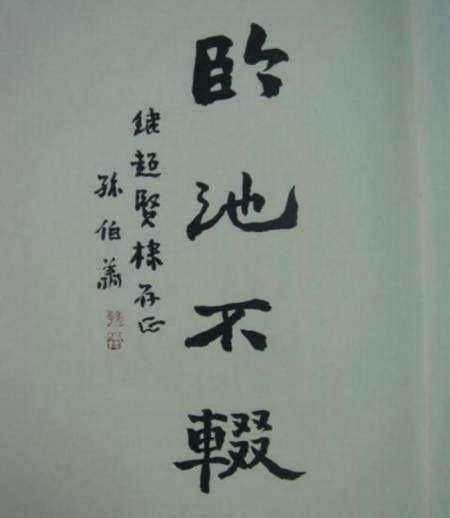 临池不辍
继超贤棣存正
孙伯翔